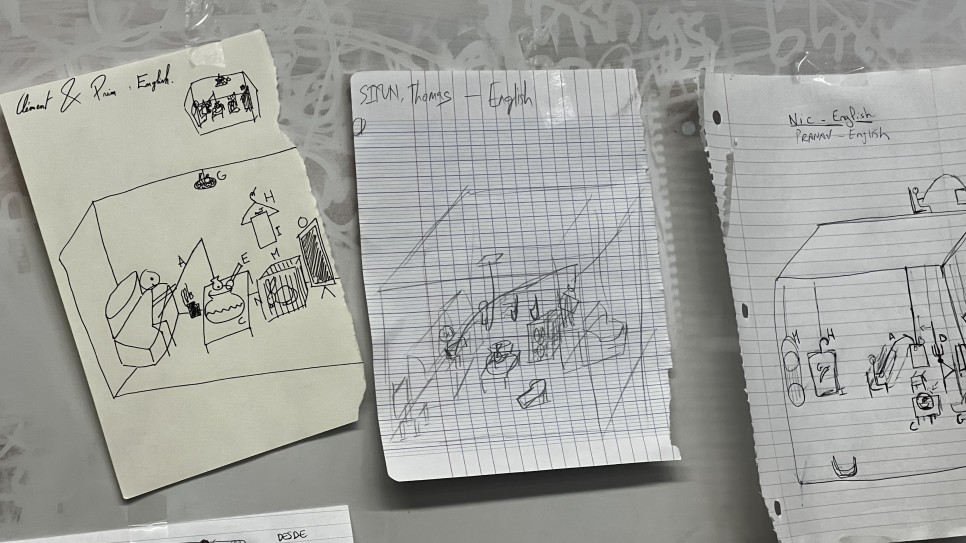 Clément & Prim, English.
G
H
I
A
E
M
O
B
N
C
SIPUN, Thomas — English
Nic - English
PRANAV - English
H
A
D
I
C
G
DESDE